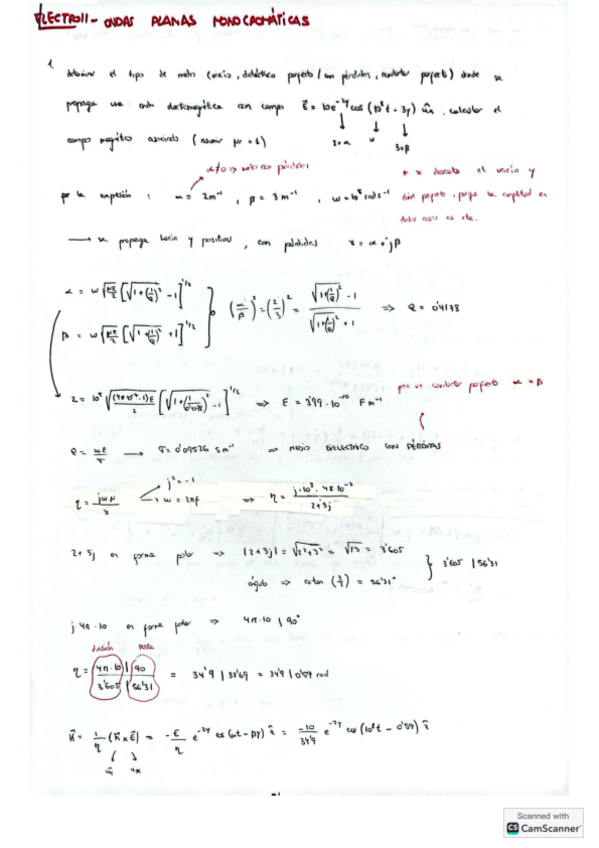 ELECTRO II - ONDAS PLANAS MONOCROMÁTICAS
1.
determinar el tipo de medio (vacío, dieléctrico perfecto / con pérdidas, conductor perfecto) donde se
propaga una onda electromagnética con campo E⃗ = 10e^{-2y} cos (10^8 t - 3y) û_x, calcular el
campo magnético asociado (asumir μr = 1)
2=α w 3=β
α≠0 ⇒ medio con pérdidas
por la expresión : α = 2m^{-1}, β = 3m^{-1}, w = 10^8 rad s^{-1}
* se descarta el vacío y
diel perfecto, porque la amplitud en
→ se propaga hacia y positivas, con pérdidas γ = α + jβ
α = w √(με/2) [√(1+(1/Q)^2) - 1]^{1/2}
β = w √(με/2) [√(1+(1/Q)^2) + 1]^{1/2}
(α/β)^2 = (2/3)^2 = (√(1+(1/Q)^2) - 1)/(√(1+(1/Q)^2) + 1) ⇒ Q = 0'4178
para un conductor perfecto α = β
2 = 10^8 √((4π·10^{-7}·1)ε/2) [√(1+(1/0'4178)^2) - 1]^{1/2} ⇒ ε = 3'99·10^{-10} F m^{-1}
Q = wε/σ → σ = 0'09526 S m^{-1} ⇒ MEDIO DIELECTRICO CON PÉRDIDAS
j^2 = -1
η = jwμ/γ → w = 2πf ⇒ η = j·10^8·4π·10^{-7}/(2+3j)
2+3j en forma polar ⇒ |2+3j| = √(2^2+3^2) = √13 = 3'605
ángulo ⇒ arctan (3/2) = 56'31° } 3'605 |56'31
j 4π·10 en forma polar ⇒ 4π·10 |90°
división resta
η = (4π·10 |90)/(3'605 |56'31) = 34'9 |33'69 = 34'9 |0'59 rad
H⃗ = 1/η (k̂ x E⃗) = -E/η e^{-2y} cos (wt - βy) ẑ = -10/34'9 e^{-2y} cos (10^8 t - 0'59) ẑ
Scanned with
CS CamScanner